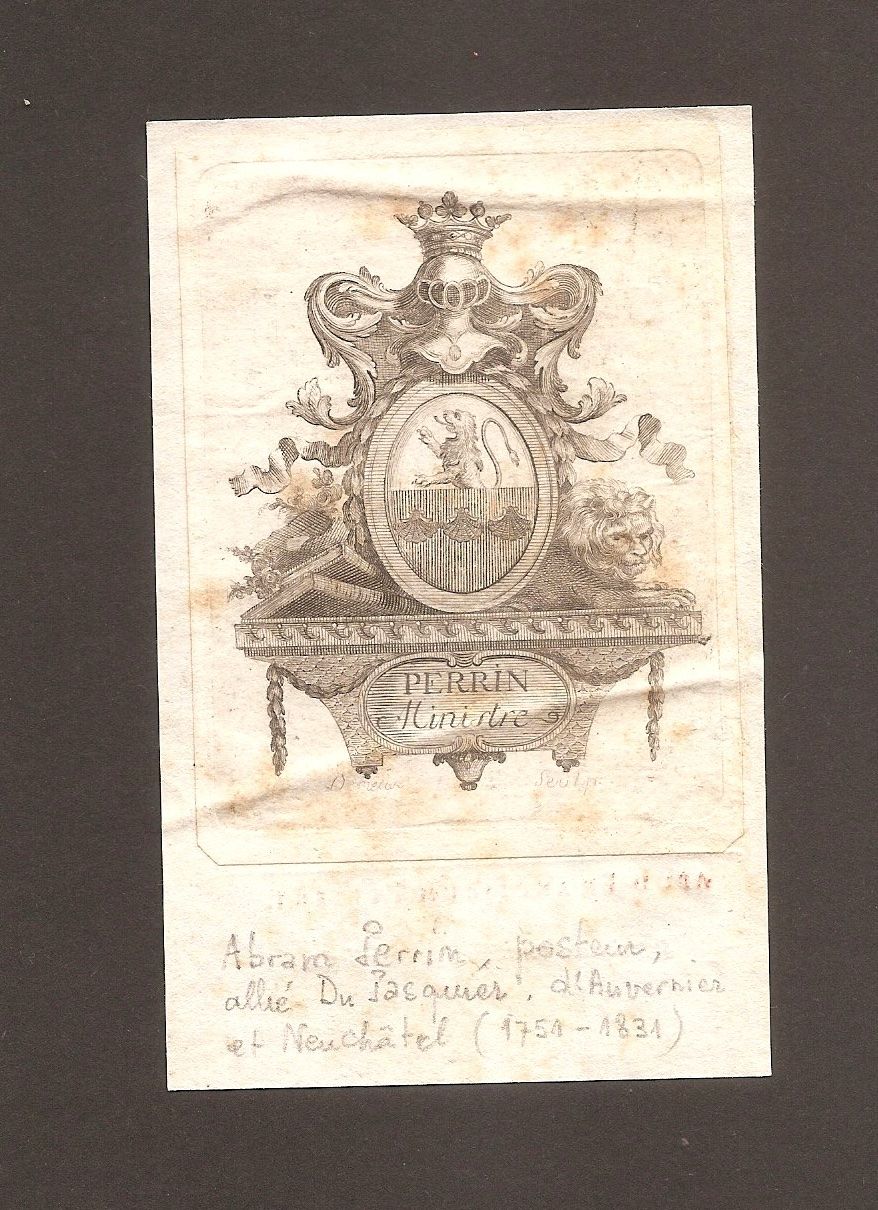 PERRIN
Ministre
Sculp.
Abram Perrin, pasteur,
allié Du Pasquier, d'Auvernier
et Neuchâtel (1751-1831)